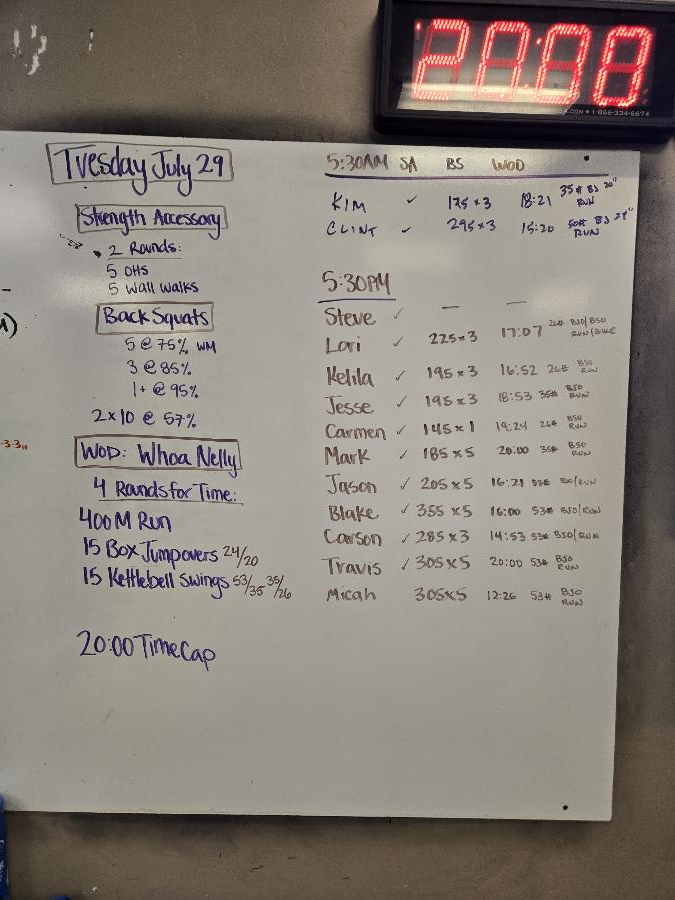 20:00
1-866-334-6674
Tuesday July 29
Strength Accessory
2 Rounds:
5 OHS
5 Wall Walks
Back Squats
5 @ 75% WM
3 @ 85%
1+ @ 95%
2x10 @ 57%
WOD: Whoa Nelly
4 Rounds for Time:
400M Run
15 Box Jumpovers 24/20
15 Kettlebell Swings 53/35 35/26
20:00 Time Cap
5:30AM SA BS WOD
KIM ✓ 175x3 18:21 35# BJ 20" RUN
CLINT ✓ 295x3 15:20 50# BJ 24" RUN
5:30PM
Steve ✓ — —
Lori ✓ 225x3 17:07 26# BJO/BSO RUN/BIKE
Kelila ✓ 195x3 16:52 26# BJO RUN
Jesse ✓ 195x3 18:53 35# BJO RUN
Carmen ✓ 145x1 19:24 26# BJO RUN
Mark ✓ 185x5 20:00 35# BJO RUN
Jason ✓ 205x5 16:21 53# BJO/RUN
Blake ✓ 355x5 16:00 53# BJO/RUN
Carson ✓ 285x3 14:53 53# BJO/RUN
Travis ✓ 305x5 20:00 53# BJO RUN
Micah 305x5 12:26 53# BJO RUN